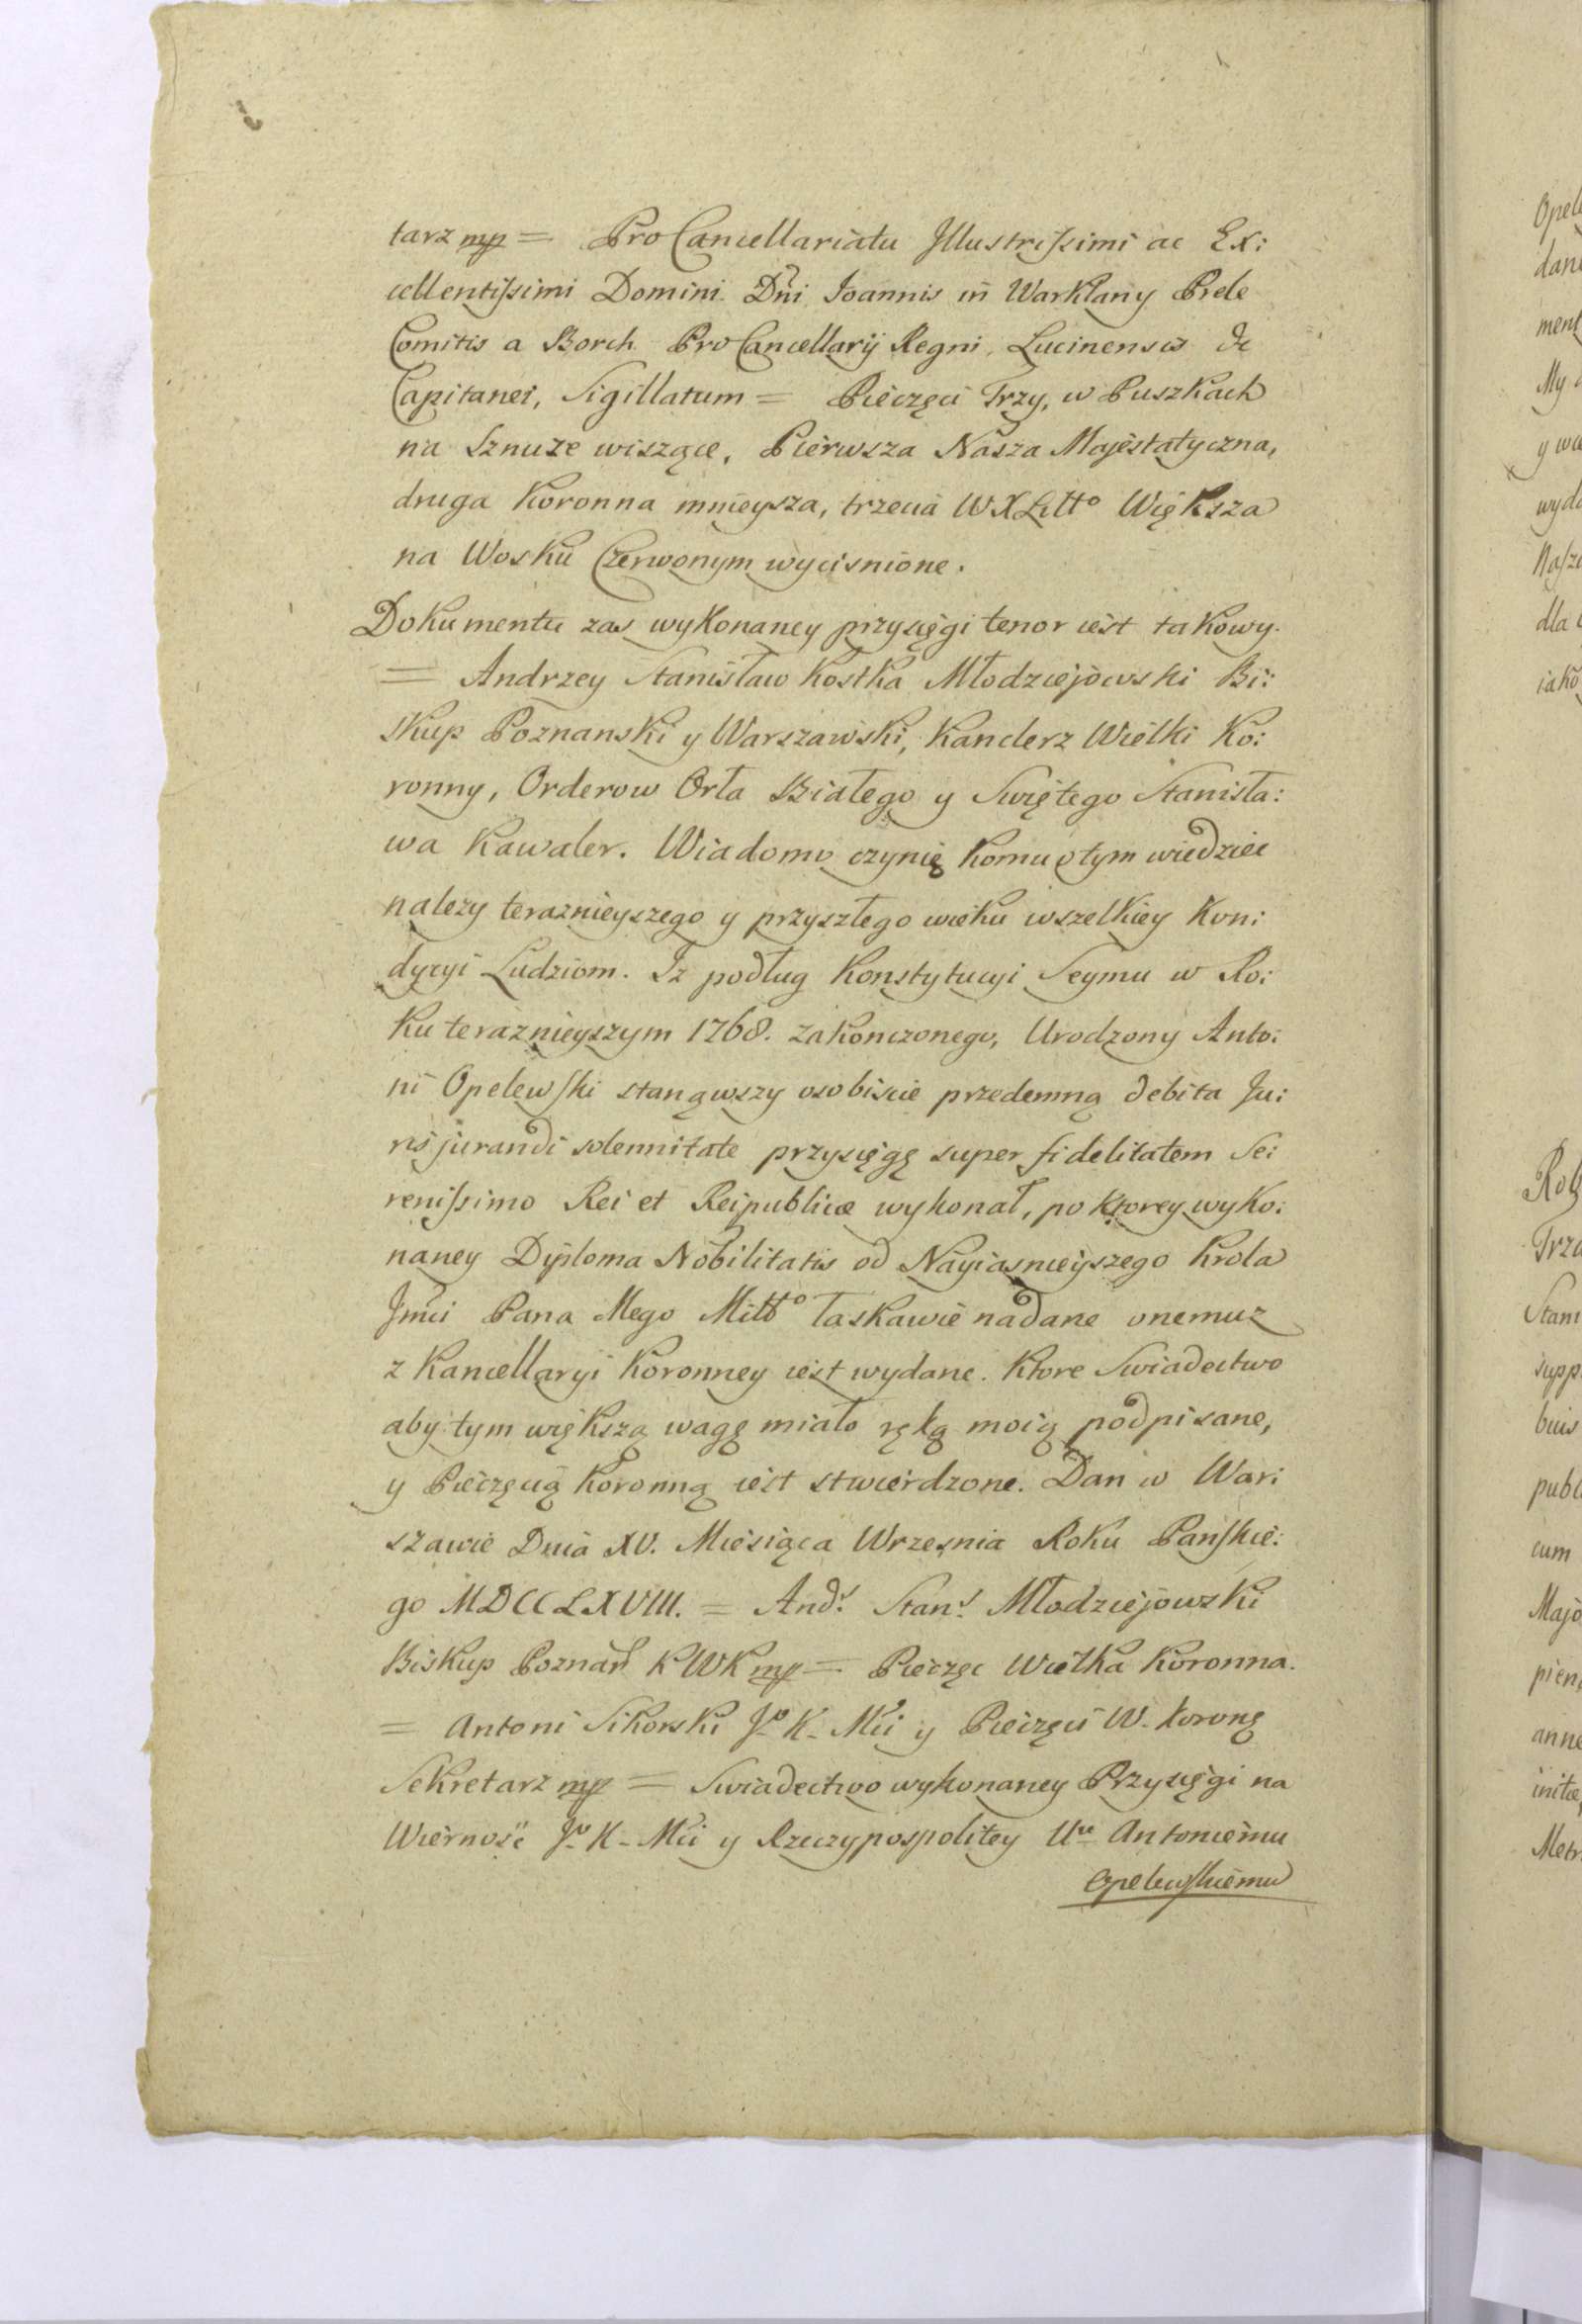 tarz mp = Pro Cancellariatu Jllustrissimi ac Ex:
cellentissimi Domini Dni Joannis in Warklany Prele
Comitis a Borch ProCancellarij Regni, Lucinensis &c
Capitanei, Sigillatum = Pieczęci Trzy, w Puszkach
na Sznuze wiszące, Pierwsza Nasza Majestatyczna,
druga Koronna mnieysza, trzecia WXLitto Większa
na Wosku Czerwonym wycisnione.
Dokumentu zas wykonaney przysięgi tenor iest takowy.
= Andrzey Stanisław Kostka Młodziejowski Bi:
skup Poznanski y Warszawski, Kanclerz Wielki Ko:
ronny, Orderow Orła Białego y Swiętego Stanisła:
wa Kawaler. Wiadomo czynię komu o tym wiedziec
nalezy teraznieyszego y przyszłego wieku wszelkiey Kon:
dycyi Ludziom. Iz podług Konstytucyi Seymu w Ro:
ku teraznieyszym 1768. zakonczonego, Urodzony Anto:
ni Opelewski stanąwszy osobiscie przedemną debita Ju:
risjurandi solennitate przysięgę super fidelitatem Se:
renissimo Rei et Reipublicæ wykonał, po ktorey wyko:
naney Dyploma Nobilitatis od Nayiasnieyszego Krola
Jmci Pana Mego Miłło łaskawie nadane onemuz
z Kancellaryi Koronney iest wydane. Ktore Swiadectwo
aby tym większą wagę miało ręką moią podpisane,
y Pieczęcią Koronną iest stwierdzone. Dan w War:
szawie Dnia XV. Miesiąca Wrzesnia Roku Panskie:
go MDCCLXVIII. = And: Stan: Młodziejowski
Biskup Poznan KWK mp = Pieczęc Wielka Koronna.
= Antoni Sikorski Jo K. Mci y Pieczęci W. Koronę
Sekretarz mp = Swiadectwo wykonaney Przysięgi na
Wierność Jo K. Mci y Rzeczypospolitey Uu Antoniemu
Opelewskiemu